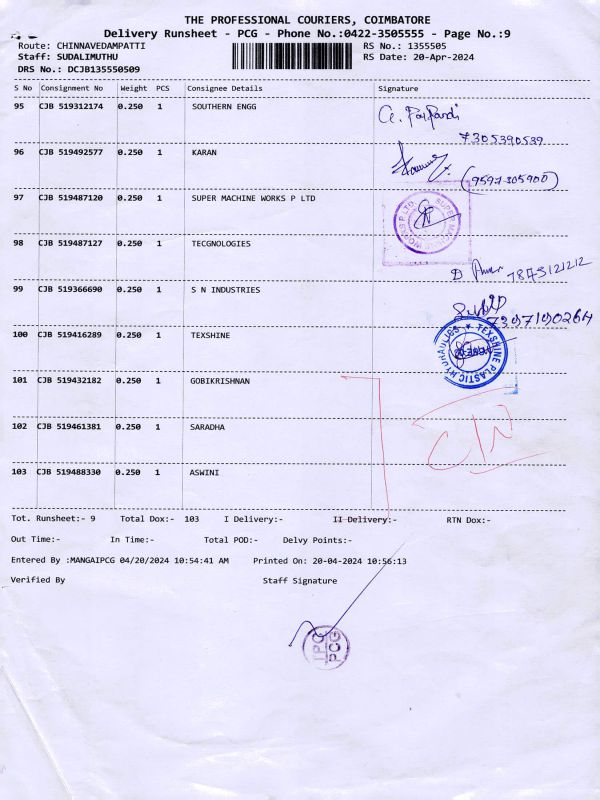 THE PROFESSIONAL COURIERS, COIMBATORE
Delivery Runsheet - PCG - Phone No.:0422-3505555 - Page No.:9
Route: CHINNAVEDAMPATTI RS No.: 1355505
Staff: SUDALIMUTHU RS Date: 20-Apr-2024
DRS No.: DCJB135550509
S No Consignment No Weight PCS Consignee Details Signature
95 CJB 519312174 0.250 1 SOUTHERN ENGG
7305390539
96 CJB 519492577 0.250 1 KARAN
(9597305900)
97 CJB 519487120 0.250 1 SUPER MACHINE WORKS P LTD
SUPER MACHINE WORKS P LTD
98 CJB 519487127 0.250 1 TECGNOLOGIES
7845121212
99 CJB 519366690 0.250 1 S N INDUSTRIES
7397190264
100 CJB 519416289 0.250 1 TEXSHINE
TEXSHINE PLASTIC HYDRAULICS
101 CJB 519432182 0.250 1 GOBIKRISHNAN
102 CJB 519461381 0.250 1 SARADHA
103 CJB 519488330 0.250 1 ASWINI
Tot. Runsheet:- 9 Total Dox:- 103 I Delivery:- II Delivery:- RTN Dox:-
Out Time:- In Time:- Total POD:- Delvy Points:-
Entered By :MANGAIPCG 04/20/2024 10:54:41 AM Printed On: 20-04-2024 10:56:13
Verified By Staff Signature
TPC
PCG